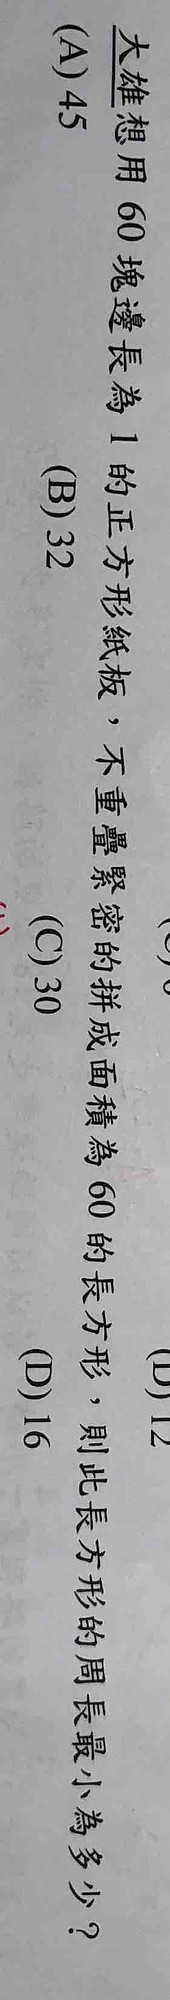 (C) 6 (D) 12
大雄想用 60 塊邊長為 1 的正方形紙板，不重疊緊密的拼成面積為 60 的長方形，則此長方形的周長最小為多少？
(A) 45 (B) 32 (C) 30 (D) 16